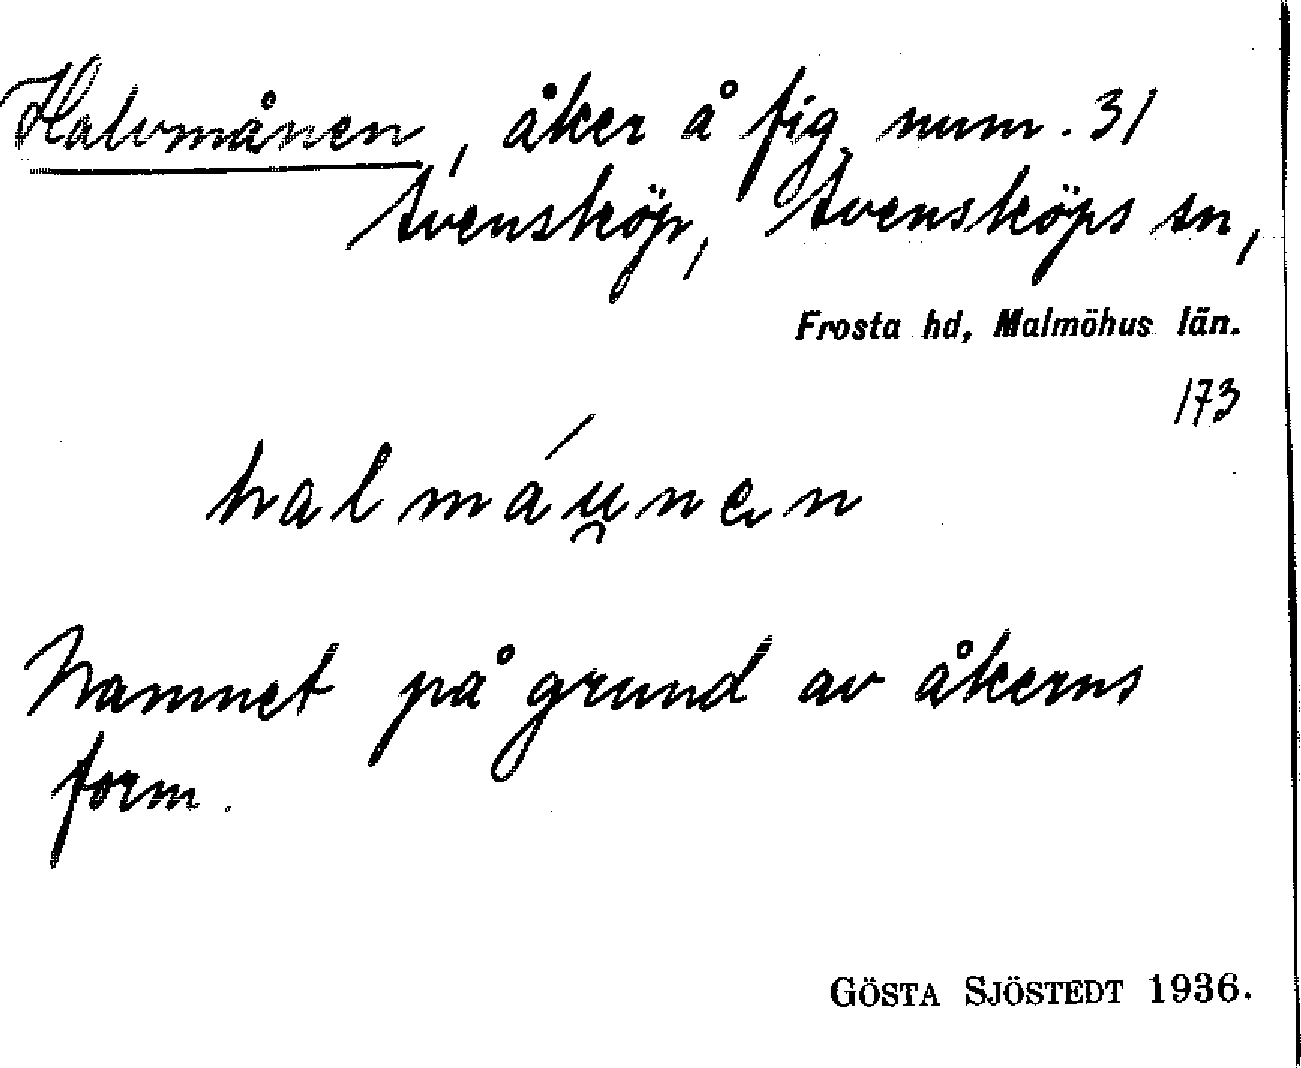 Halvmånen, åker å fig. num. 31
Svensköp, Svensköps sn,
Frosta hd, Malmöhus län.
173
halmáu̯nen
Namnet på grund av åkerns
form.
GÖSTA SJÖSTEDT 1936.